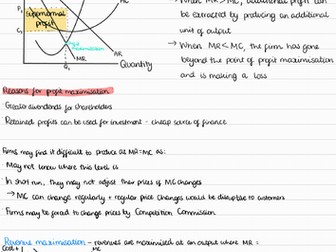 P₁
Supernormal
profit
C₁
MC
AR
MR
Profit
maximisation
Q₁
Quantity
→ When MR > MC, additional profit can
be extracted by producing an additional
unit of output
→ When MR < MC, the firm has gone
beyond the point of profit maximisation
and is making a loss
Reasons for profit maximisation
Greater dividends for shareholders
Retained profits can be used for investment - cheap source of finance
Firms may find it difficult to produce at MR = MC as:
May not know where this level is
In short run, they may not adjust their prices if MC changes
→ MC can change regularly + regular price changes would be disruptive to customers
Firms may be forced to change prices by Competition Commission
Revenue maximisation - revenues are maximised at an output where MR =
Cost +